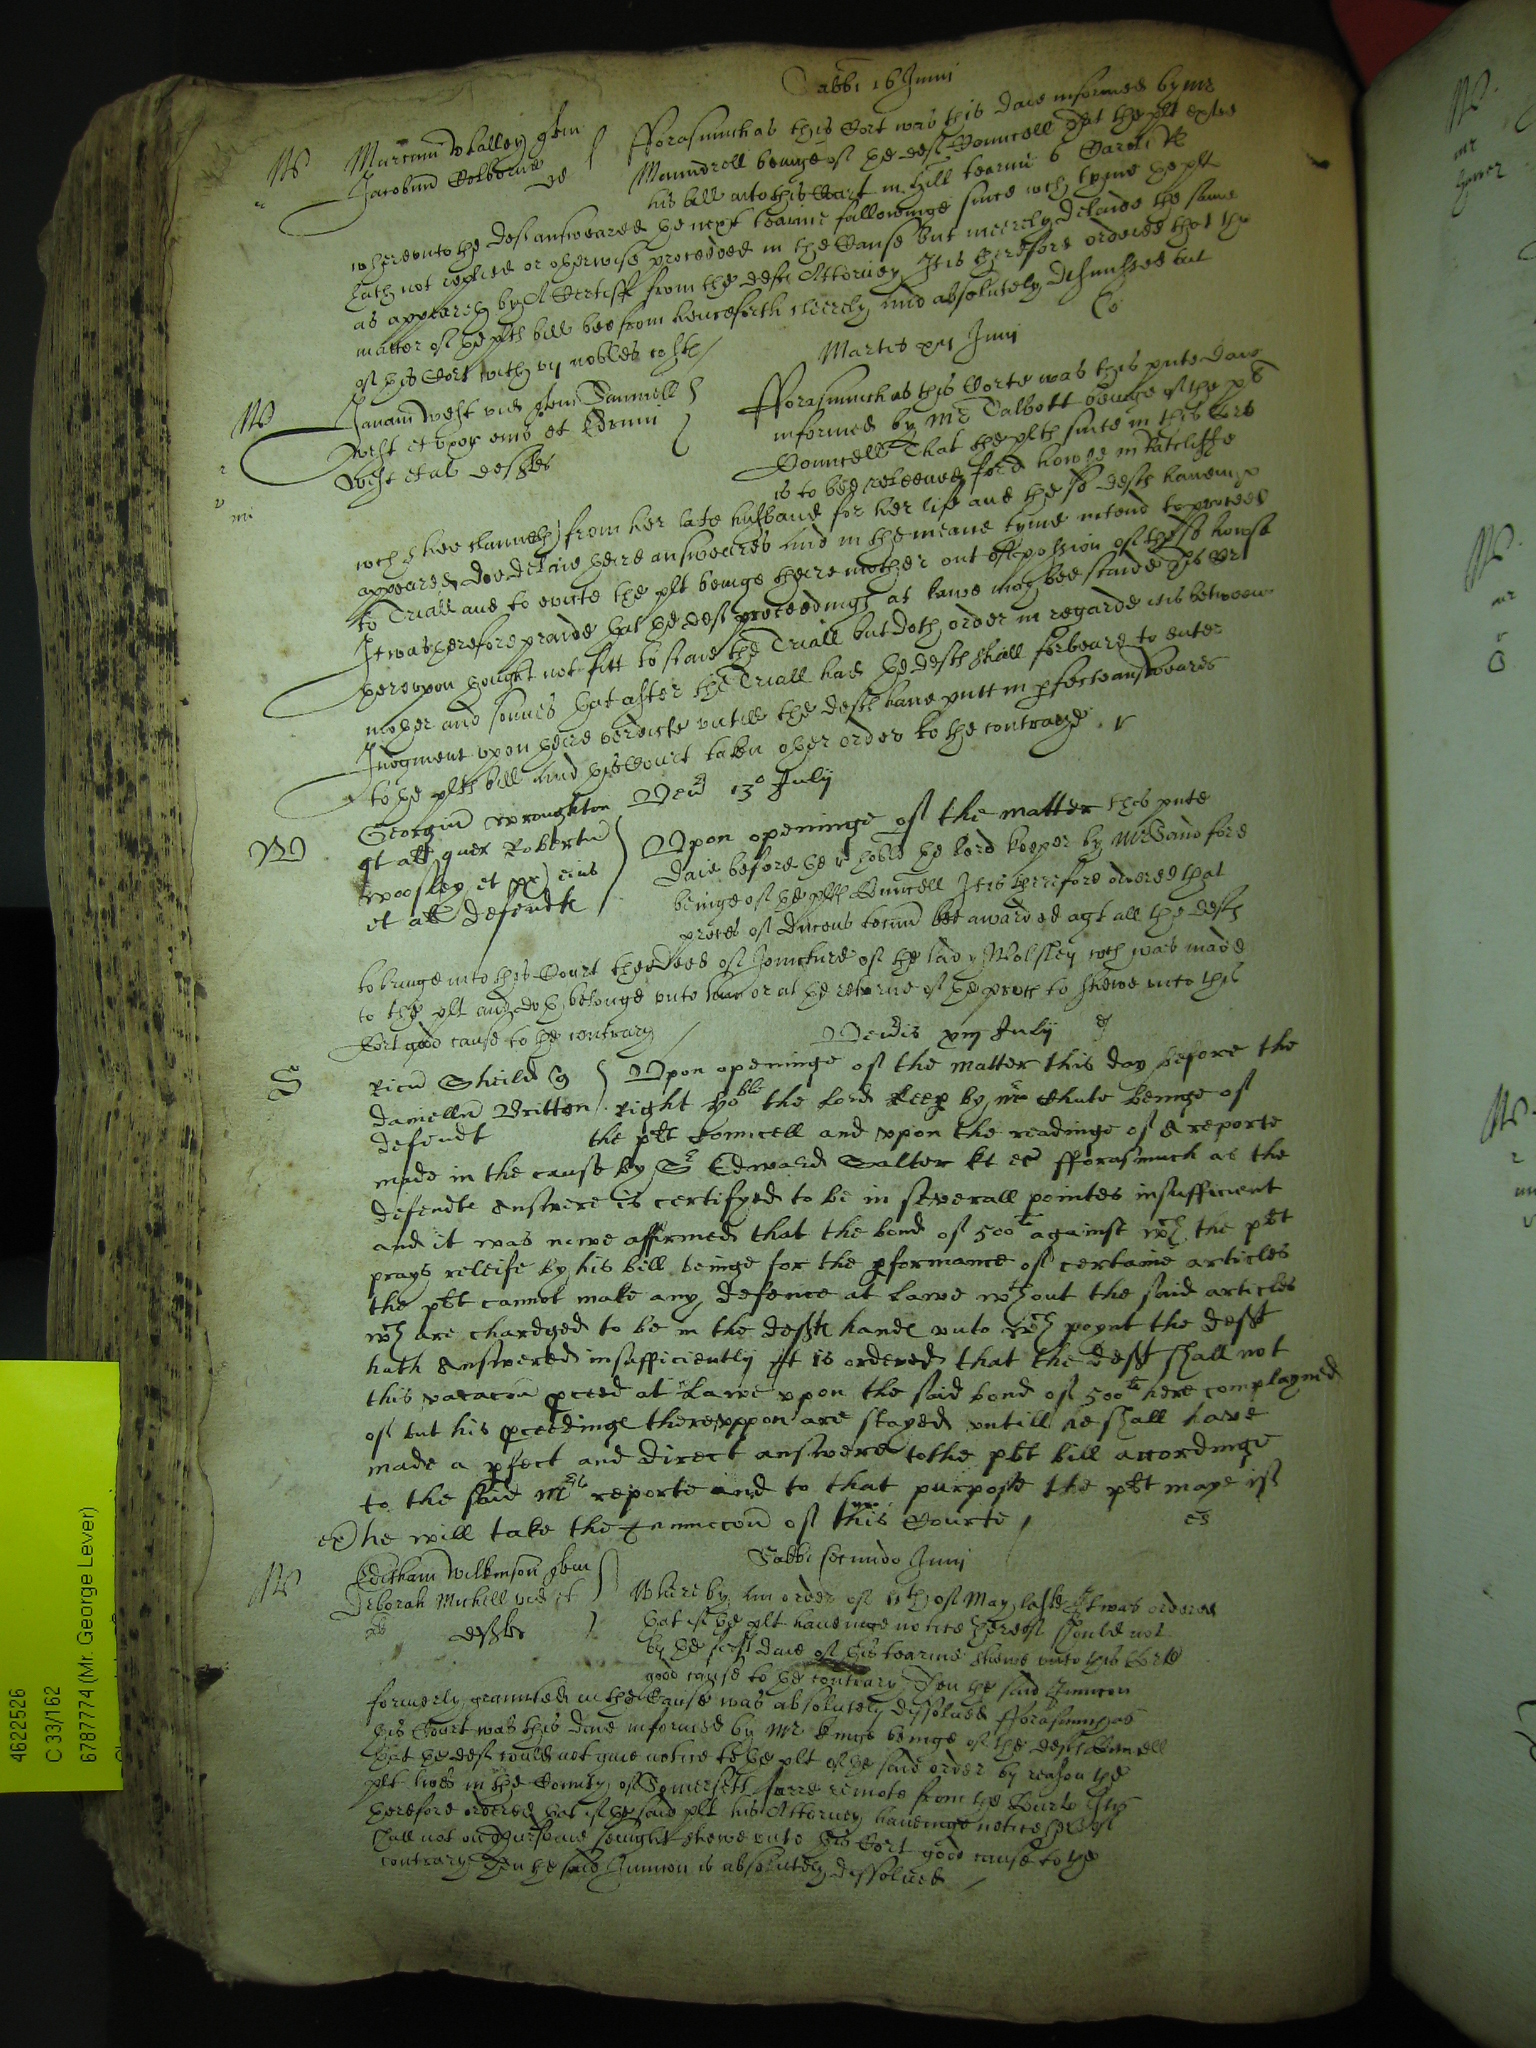 Sabbi 16 Junij
W Martinū Whalley quer
Jacobum Colborne
de
fforasmuch as this Cort was this daie informed by Mr
Maundrell beinge of the deftes Councell that the plt exhted
his bill into this Court in Hill tearme 6 Caroli Rs
wherevnto the deft answeared the next tearme followinge since wch tyme the plt
hath not replied or otherwise proceeded in the Cause but meerely delaies the same
as appeareth by A Certiff from the defts Attorney It is therefore ordered that the
matter of the plts bill bee from henceforth cleerely and absolutely dismissed out
of this Cort with vij nobles costs
Martis Junij
W
West vid quer Samuell
West et vxor eius et Edrum
West et al deftes
fforasmuch as this Corte was this pnte daie
informed by Mr Talbott beinge of the plts
Councell That the plts suite in this Cort
is to bee releeved for a howse in Ratcliffe
wch shee claimeth from her late husband for her life and the sd defts haveinge
appeared doe delaie theire answeares and in the meane tyme intend to proceed
to Triall and to evicte the plt beinge theire mother out of possion of the sd howse
It was therefore praide that the defts proceedings at lawe may bee staide This Cort
therevpon thought not fitt to staie the Triall but doth order in regarde it is betweene
mother and sonnes that after the Triall had the defts shall forbeare to enter
Judgment vpon theire verdicte vntill the defts have putt in perfecte answeares
to the plts bill and this Court taken other order to the contrarye
W Georgiū Wroughton
et al quer Robertū
Woosley et vx eius
et al defendtes
Ven 13o Julij
Vpon openinge of the matter this pnte
daie before the r hoble the lord keeper by Mr Sandford
beinge of the plts Councell It is therefore ordered that
proces of Ducens tecum bee awarded agt all the defts
to bringe into this Court the Deed of Joincture of the lady Wolsley wch was made
to the plt and doth belonge vnto him or at the retorne of the proces to shewe vnto this
Cort good cause to the contrary
Veneris xiij Julij
S Ricū Sheild q
Daniellū Britten
defendt
Vpon openinge of the matter this day before the
right hoble the Lord Keep by mr Chute beinge of
the plt Councell and vpon the readinge of a reporte
made in the cause by Sr Edward Salter kt etc fforasmuch as the
defendte answere is certifyed to be in severall pointes insufficient
and it was nowe affirmed that the bond of 500li against wch the plt
prays releife by his bill beinge for the pformance of certaine articles
the plt cannot make any defence at Lawe wthout the said articles
wch are chardged to be in the defte hande vnto wch poynt the deft
hath answered insufficiently it is ordered that the deft shall not
this vacacon pceed at Lawe vpon the said bond of 500li here complayned
of but his pceedinge therevppon are stayed vntill he shall have
made a pfect and direct answere to the plt bill accordinge
to the said Mrs reporte and to that purpose the plt maye if
he will take the Iniunccon of this Courte
Sabbi secundo Junij
W Editham Wilkinson quer
Deborah Michell vid et
al deftes
Whereby an order of 11th of May laste It was ordered
that if the plt haueinge notice thereof should not
by the first daie of this tearme shewe vnto this Corte
good cause to the contrary Then the said Iniuncon
formerly graunted in the Cause was absolutely dissolued fforasmuch as
this Court was this daie informed by Mr Kinge beinge of the defts Councell
that the deft could not giue notice to the plt of the said order by reason the
plt lives in the County of Somersett farre remote from the Courte It is
therefore ordered that if the said plt his Attorney haueinge notice thereof
shall not on Thursdaie seuight shewe vnto this Cort good cause to the
contrary Then the said Iniuncon is absolutely dissolued
4622526
C 33/162
6787774 (Mr. George Lever)